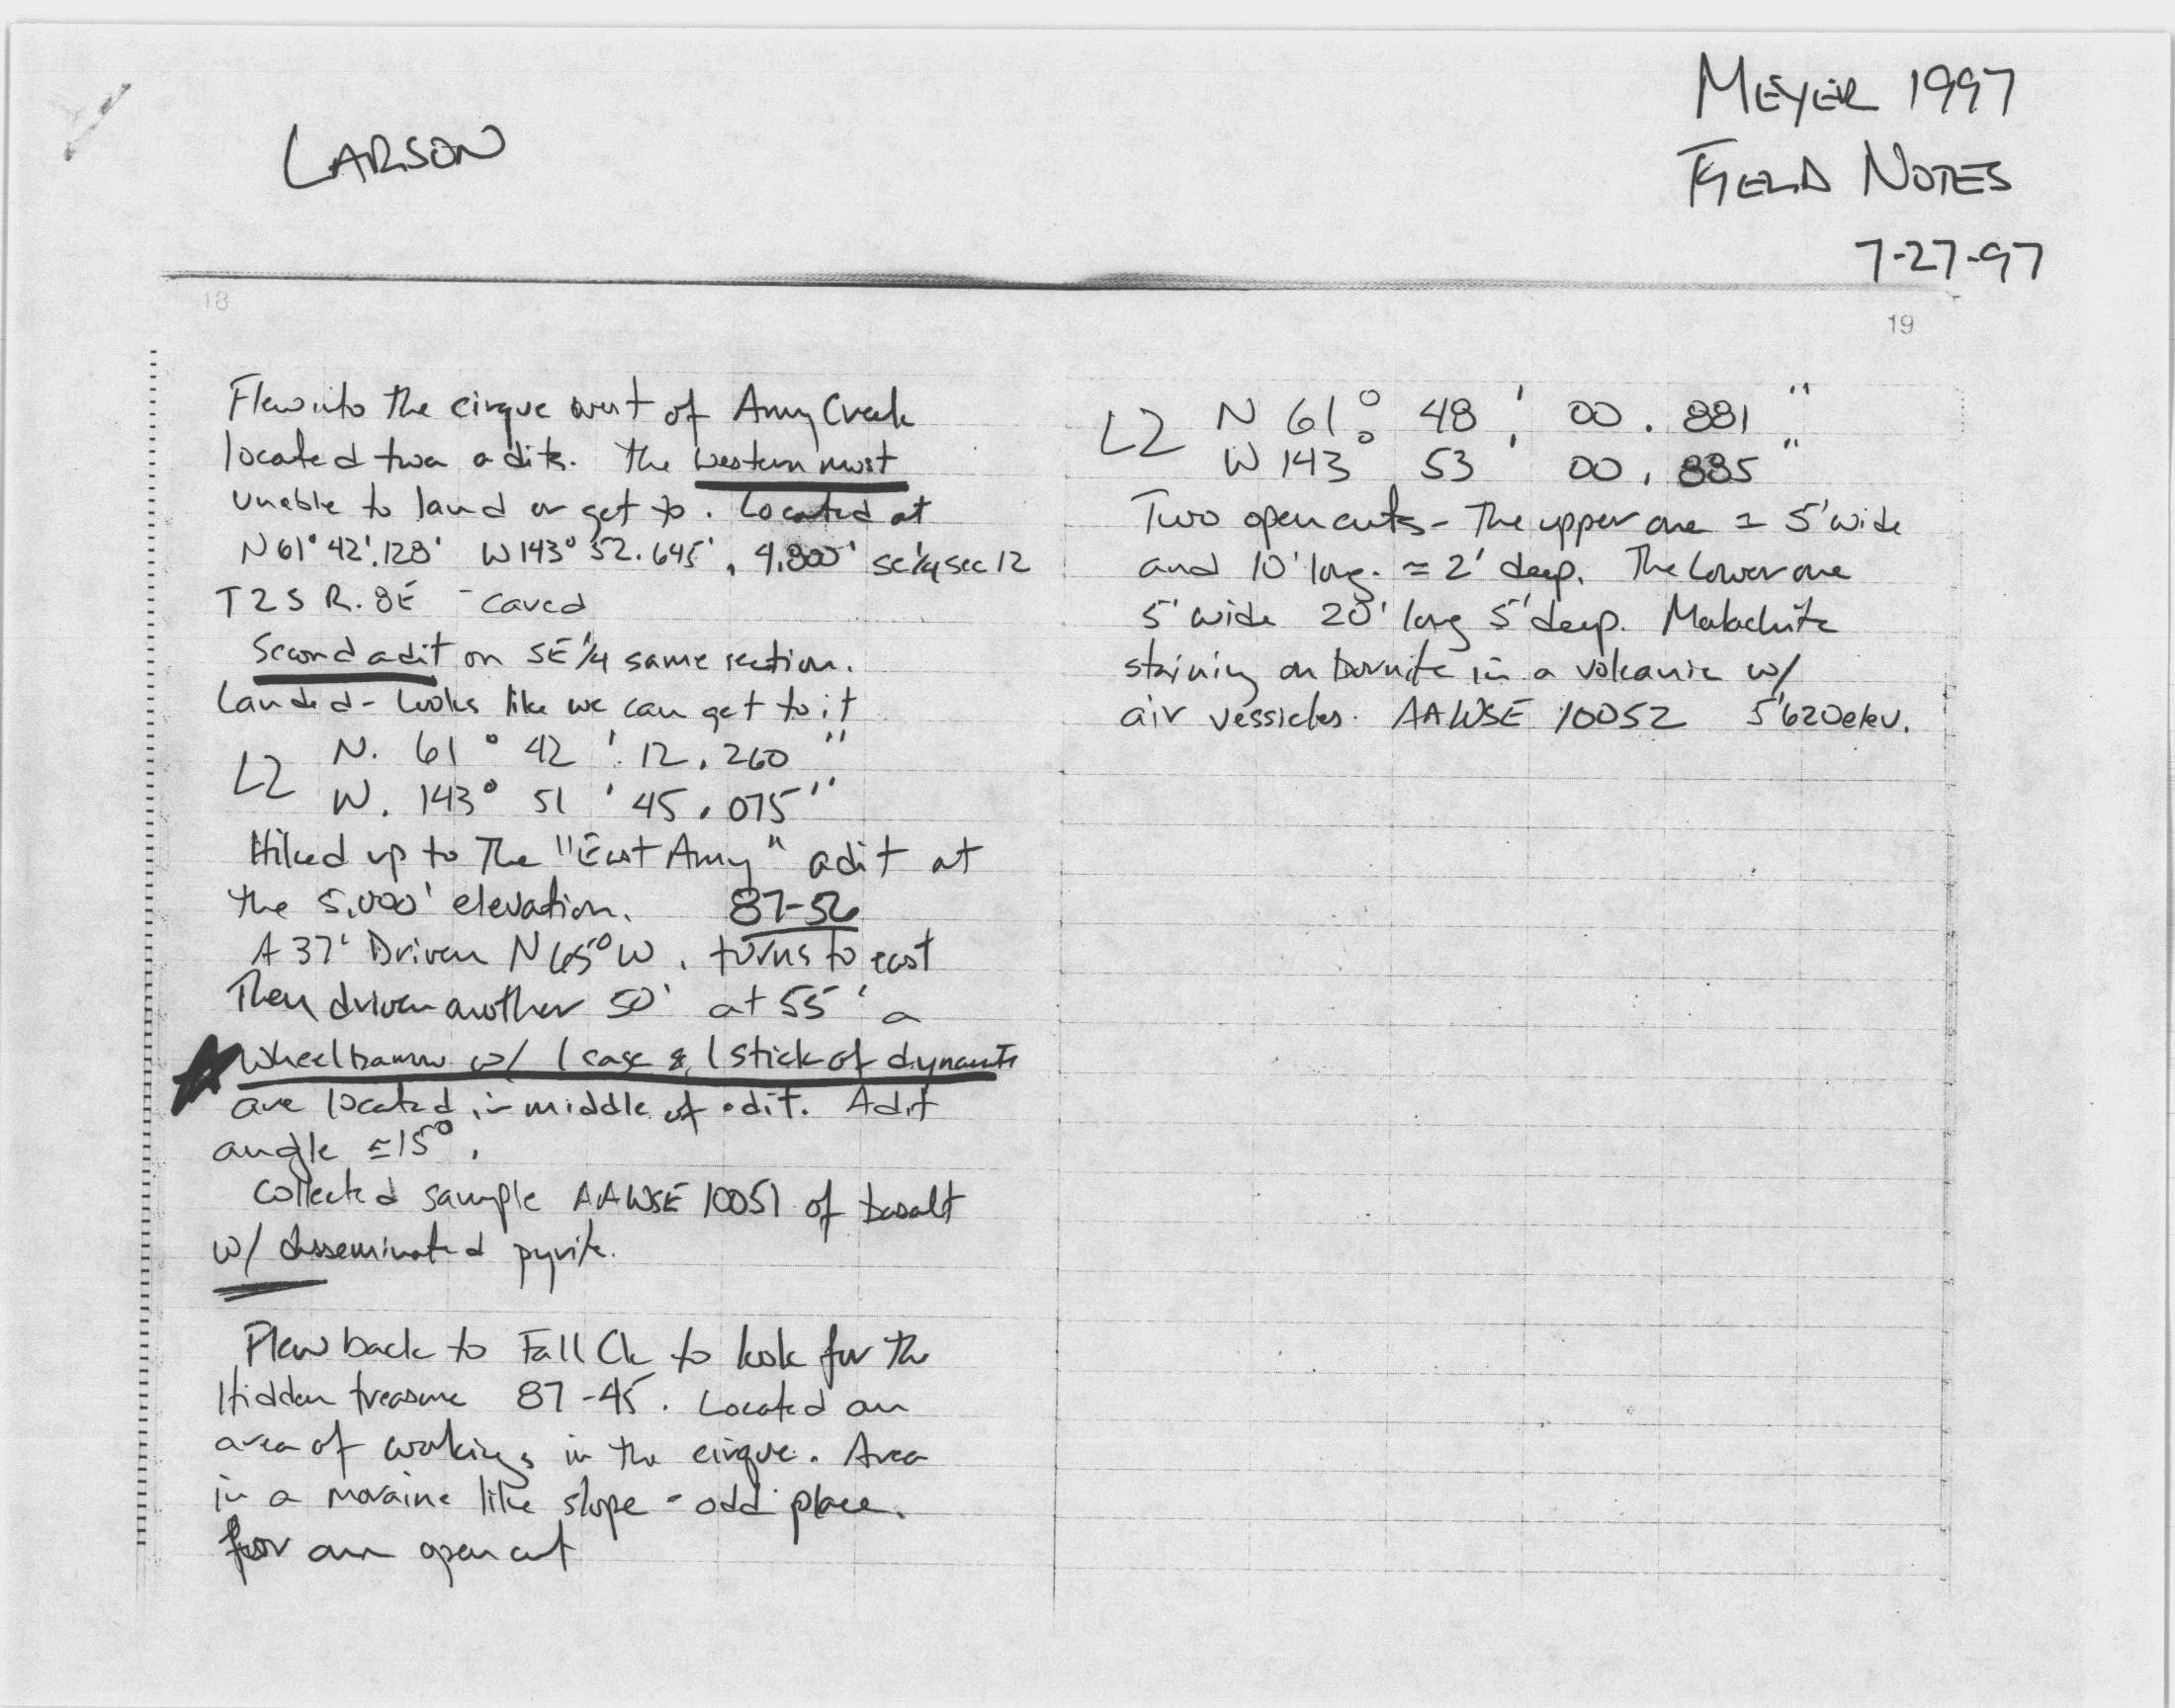 LARSON
MEYER 1997
FIELD NOTES
7-27-97
18
19
Flew into the cirque west of Amy Creek
located two adits. The western most
unable to land or get to. Located at
N61° 42'.128' W143° 52.645', 4,800' SE¼ sec 12
T2S R.8E - caved
Second adit on SE¼ same section.
Landed - looks like we can get to it
L2 N. 61° 42' 12.260"
W. 143° 51' 45.075"
Hiked up to The "East Amy" adit at
the 5,000' elevation. 87-56
A 37' Driven N65°W, turns to east
Then driven another 50' at 55' a
Wheelbarrow w/ 1 case & 1 stick of dynamite
are located in middle of adit. Adit
angle ≈15°.
Collected sample AAWSE 10051 of basalt
w/ disseminated pyrite.
Flew back to Fall Ck to look for the
Hidden treasure 87-45. Located an
area of workings in the cirque. Area
in a moraine like slope - odd place.
for an open cut
L2 N 61° 48' 00.881"
W 143° 53' 00.885"
Two open cuts - The upper one ≈ 5' wide
and 10' long. ≈ 2' deep. The lower one
5' wide 20' long 5' deep. Malachite
staining on bornite in a volcanic w/
air vessicles. AAWSE 10052 5'620 elev.